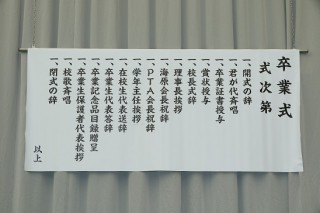 卒業式
式次第
一、開式の辞
一、君が代斉唱
一、卒業証書授与
一、賞状授与
一、校長式辞
一、理事長挨拶
一、海原会長祝辞
一、PTA会長祝辞
一、学年主任挨拶
一、在校生代表送辞
一、卒業生代表答辞
一、卒業記念品目録贈呈
一、卒業生保護者代表挨拶
一、校歌斉唱
一、閉式の辞
以上